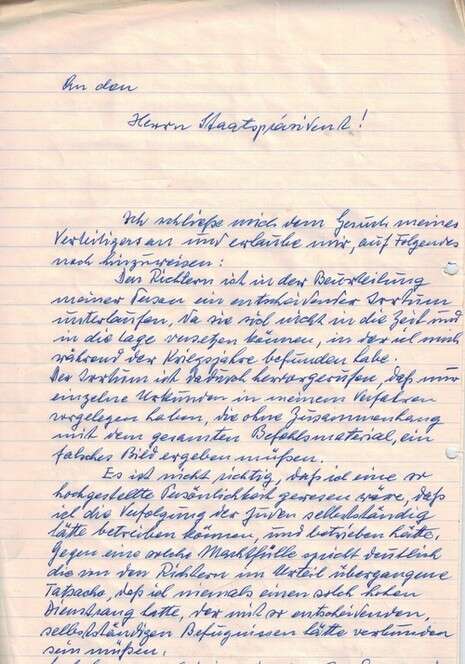 An den
Herrn Staatspräsident!
Ich schließe mich dem Gesuch meines
Verteitigers an und erlaube mir, auf folgendes
noch hinzuweisen:
Den Richtern ist in der Beurteilung
meiner Person ein entscheidenter Irrtum
unterlaufen, da sie sich nicht in die Zeit und
in die Lage versetzen können, in der ich mich
während der Kriegsjahre befunden habe.
Der Irrtum ist dadurch hervorgerufen, daß mir
einzelne Urkunden in meinem Verfahren
vorgelegen haben, die ohne Zusammenhang
mit dem gesamten Befehlsmaterial, ein
falsches Bild ergeben müßen.
Es ist nicht richtig, daß ich eine so
hochgestellte Persönlichkeit gewesen wäre, daß
ich die Verfolgung der Juden selbstständig
hätte betreiben können, und betrieben hätte.
Gegen eine solche Machtfülle spricht deutlich
die von den Richtern im Urteil übergangene
Tatsache, daß ich niemals einen solch hohen
Dienstrang hatte, der mit so entscheidenden,
selbstständigen Befugnissen hätte verbunden
sein müßen.